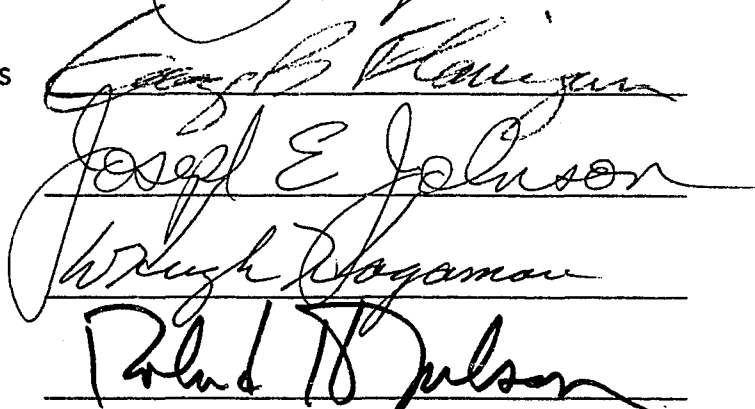 s George B Flanigan
Joseph E Johnson
W Hugh Hagaman
Roland H Nelson